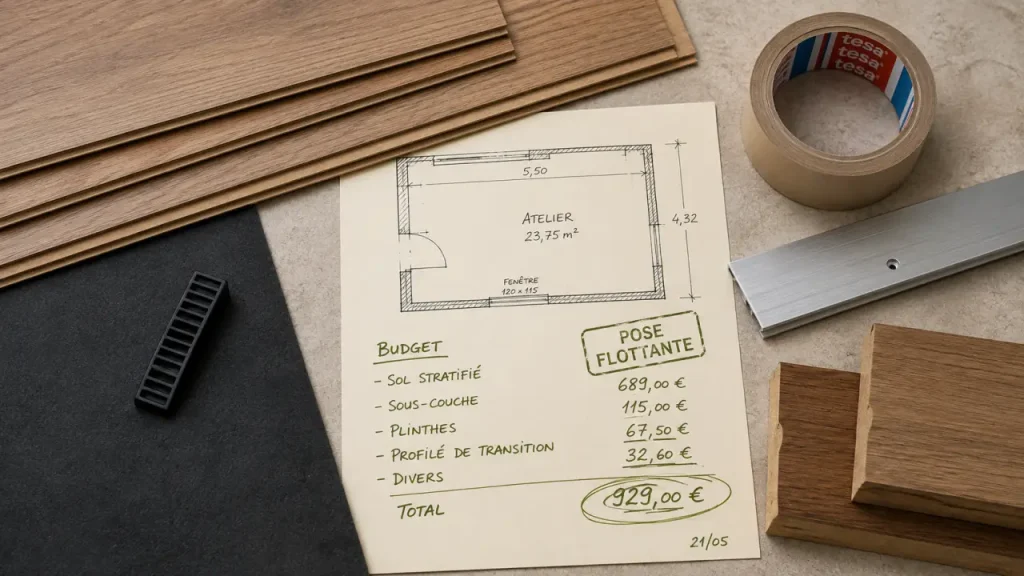 tesa
tesa
tesa
5,50
4,32
ATELIER
23,75 m²
FENÊTRE
120 x 115
POSE
FLOTTANTE
BUDGET
- SOL STRATIFIÉ 689,00 €
- SOUS-COUCHE 115,00 €
- PLINTHES 67,50 €
- PROFILÉ DE TRANSITION 32,60 €
- DIVERS
TOTAL 929,00 €
21/05